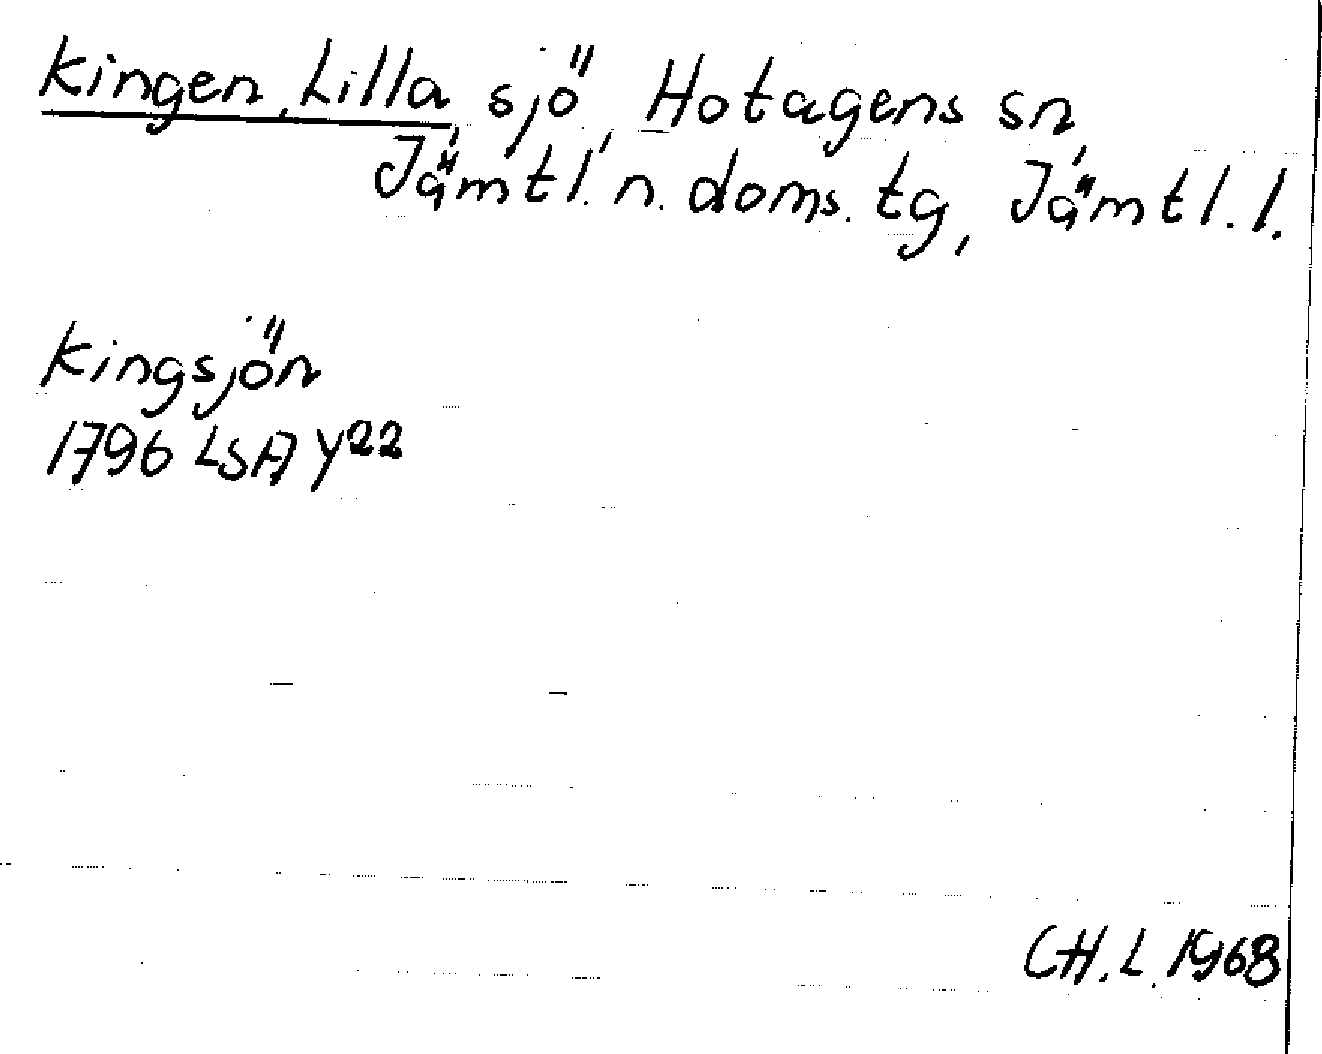 Kingen, Lilla, sjö, Hotagens sn,
Jämtl. n. doms. tg, Jämtl. l.
Kingsjön
1796 LSA Y22
CH. L. 1968